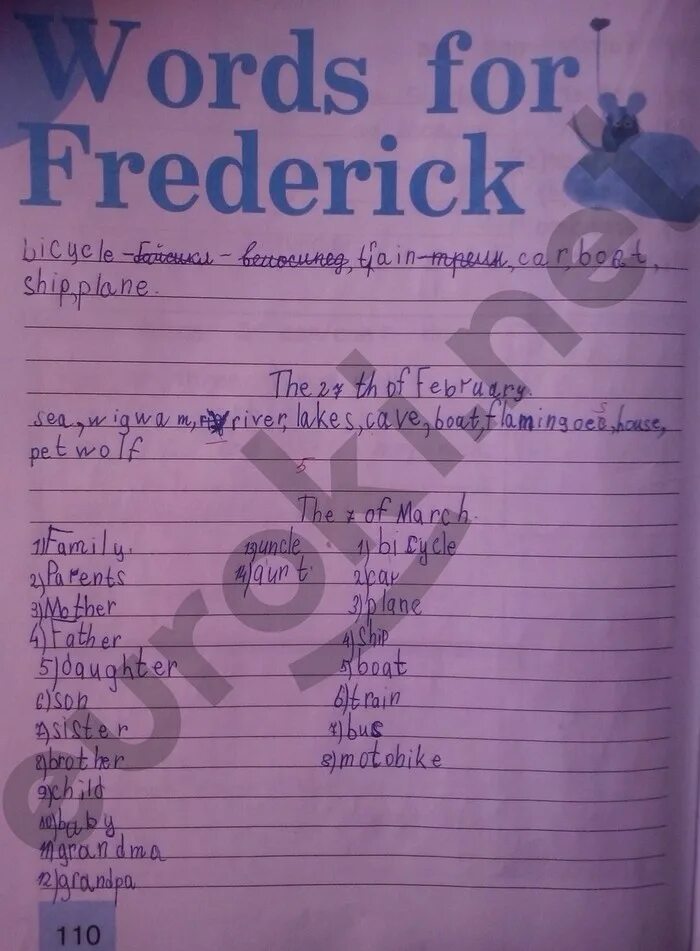 Words for
Frederick
bicycle - байсикл - велосипед, train - трейн, car, boat,
ship, plane.
The 27 th of February.
sea, wigwam, river, lakes, cave, boat, flamingoes, house,
pet wolf
5
The 7 of March.
1) Family.
2) Parents
3) Mother
4) Father
5) daughter
6) son
7) sister
8) brother
9) child
10) baby
11) grandma
12) grandpa
13) uncle
14) aunt.
1) bicycle
2) car
3) plane
4) ship
5) boat
6) train
7) bus
8) motobike
110
euroki.net